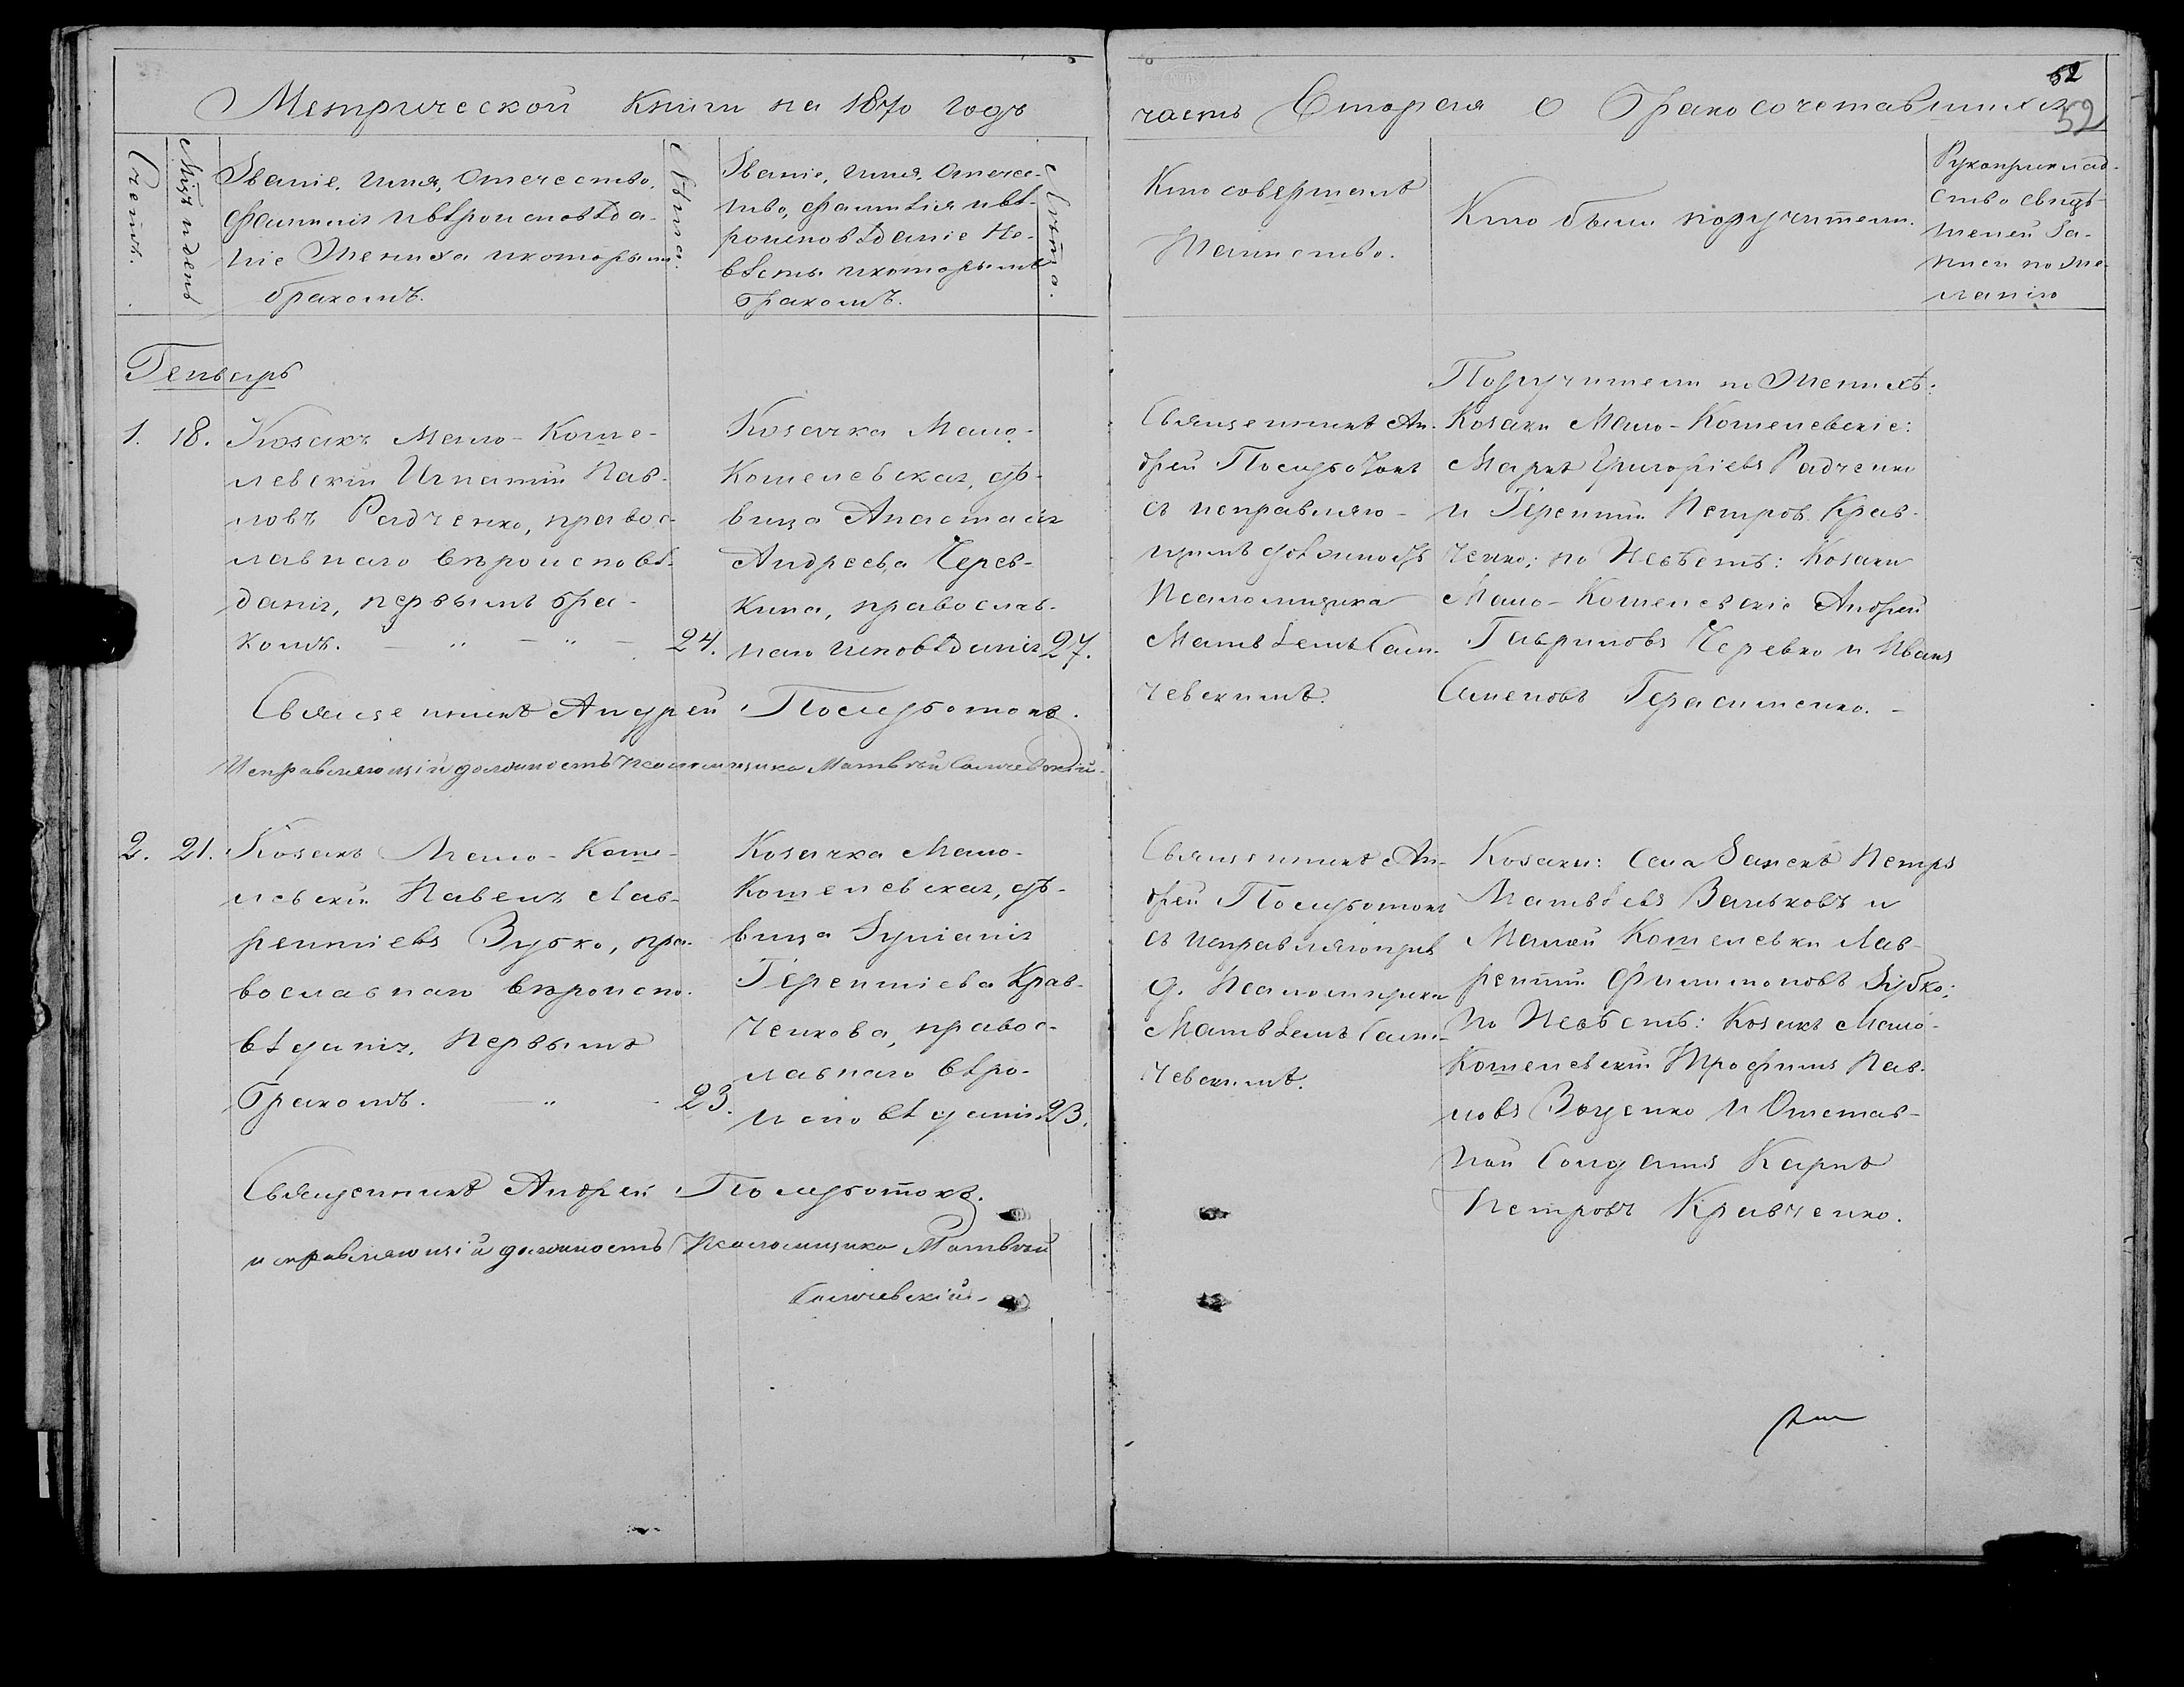 Метрической книги на 1870 годъ
часть Вторая о бракосочетавшихся
52
52
Счетъ.
Мѣсяцъ и день
Званіе, имя, отечество,
фамилія и вѣроисповѣда-
ніе жениха и которымъ
бракомъ.
Лѣта.
Званіе, имя, отече-
ство, фамилія и вѣ-
роисповѣданіе Не-
вѣсты и которымъ
бракомъ.
Лѣта.
Кто совершалъ
Таинство.
Кто были поручители.
Рукоприклад-
ство свидѣ-
телей за-
писи по же-
ланію
Генварь
1. 18. Козакъ Мало-Коше-
левскій Игнатій Пав-
ловъ Радченко, правос-
лавнаго вѣроисповѣ-
данія, первымъ бра-
комъ. 24.
Козачка Мало-
Кошелевская, дѣ-
вица Анастасія
Андреева Черев-
кина, православ-
наго исповѣданія 27.
Священникъ Ан-
дрей Полуботокъ
съ исправляю-
щимъ должность
Псаломщика
Матвѣемъ Сам-
чевскимъ.
Поручители по женихѣ:
Козаки Мало-Кошелевскіе:
Маркъ Григоріевъ Радченко
и Терентій Петров. Крав-
ченко; по Невѣстѣ: Козаки
Мало-Кошелевскіе Андрей
Гавриловъ Черевко и Иванъ
Семеновъ Герасименко. -
Священникъ Андрей Полуботокъ.
Исправляющій должность Псаломщика Матвѣй Самчевскій.
2. 21. Козакъ Мало-Коше-
левскій Павелъ Лав-
рентіевъ Зубко, пра-
вославнаго вѣроиспо-
вѣданія, первымъ
бракомъ. 23.
Козачка Мало-
Кошелевская, дѣ-
вица Зуліанія
Терентіева Крав-
ченкова, правос-
лавнаго вѣро-
исповѣданія 23.
Священникъ Ан-
дрей Полуботокъ
съ исправляющимъ
д. Псаломщика
Матвѣемъ Сам-
чевскимъ.
Козаки: Петръ
Матвѣевъ Вальковъ и
Малой Кошелевки Лав-
рентій Филимоновъ Зубко;
по Невѣстѣ: Козакъ Мало-
Кошелевскій Трофимъ Пав-
ловъ Воценко и Отстав-
ной Солдатъ Карпъ
Петровъ Кравченко.
Священникъ Андрей Полуботокъ.
исправляющій должность Псаломщика Матвѣй
Самчевскій.